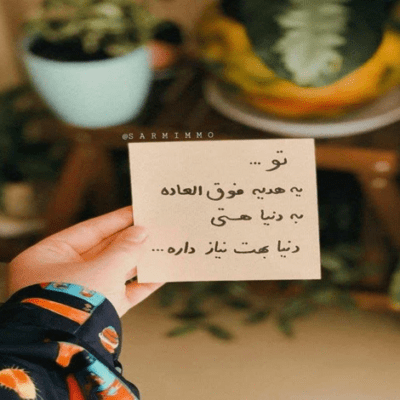 @SARMIMMO
تو ...
یه هدیه فوق العاده
به دنیا هستی
دنیا بهت نیاز داره ...